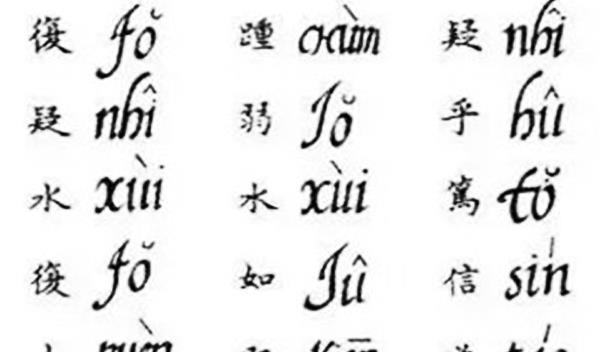 復 fŏ 踵 chùm 疑 nhî
疑 nhî 弱 jŏ 乎 hû
水 xùi 水 xùi 篤 tŏ
復 fŏ 如 jû 信 sín